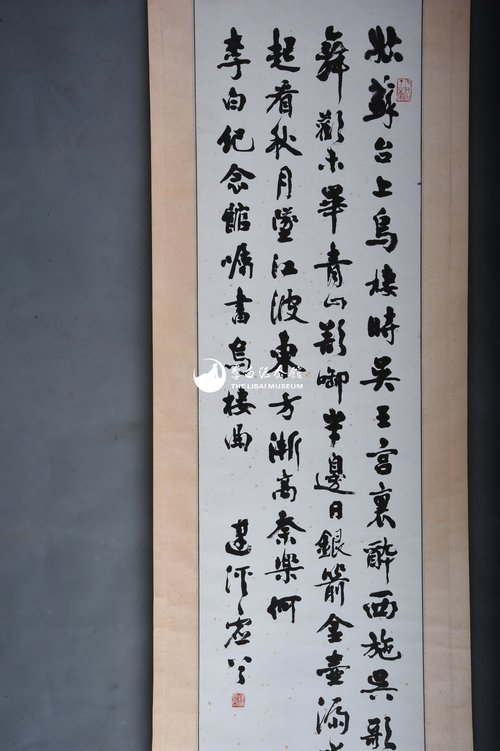 姑蘇台上烏棲時吳王宮裏醉西施吳歌
舞歡未畢青山欲啣半邊日銀箭金壺漏
起看秋月墜江波東方漸高奈樂何
李白紀念館囑書烏棲曲
李白纪念馆
THE LIBAI MUSEUM